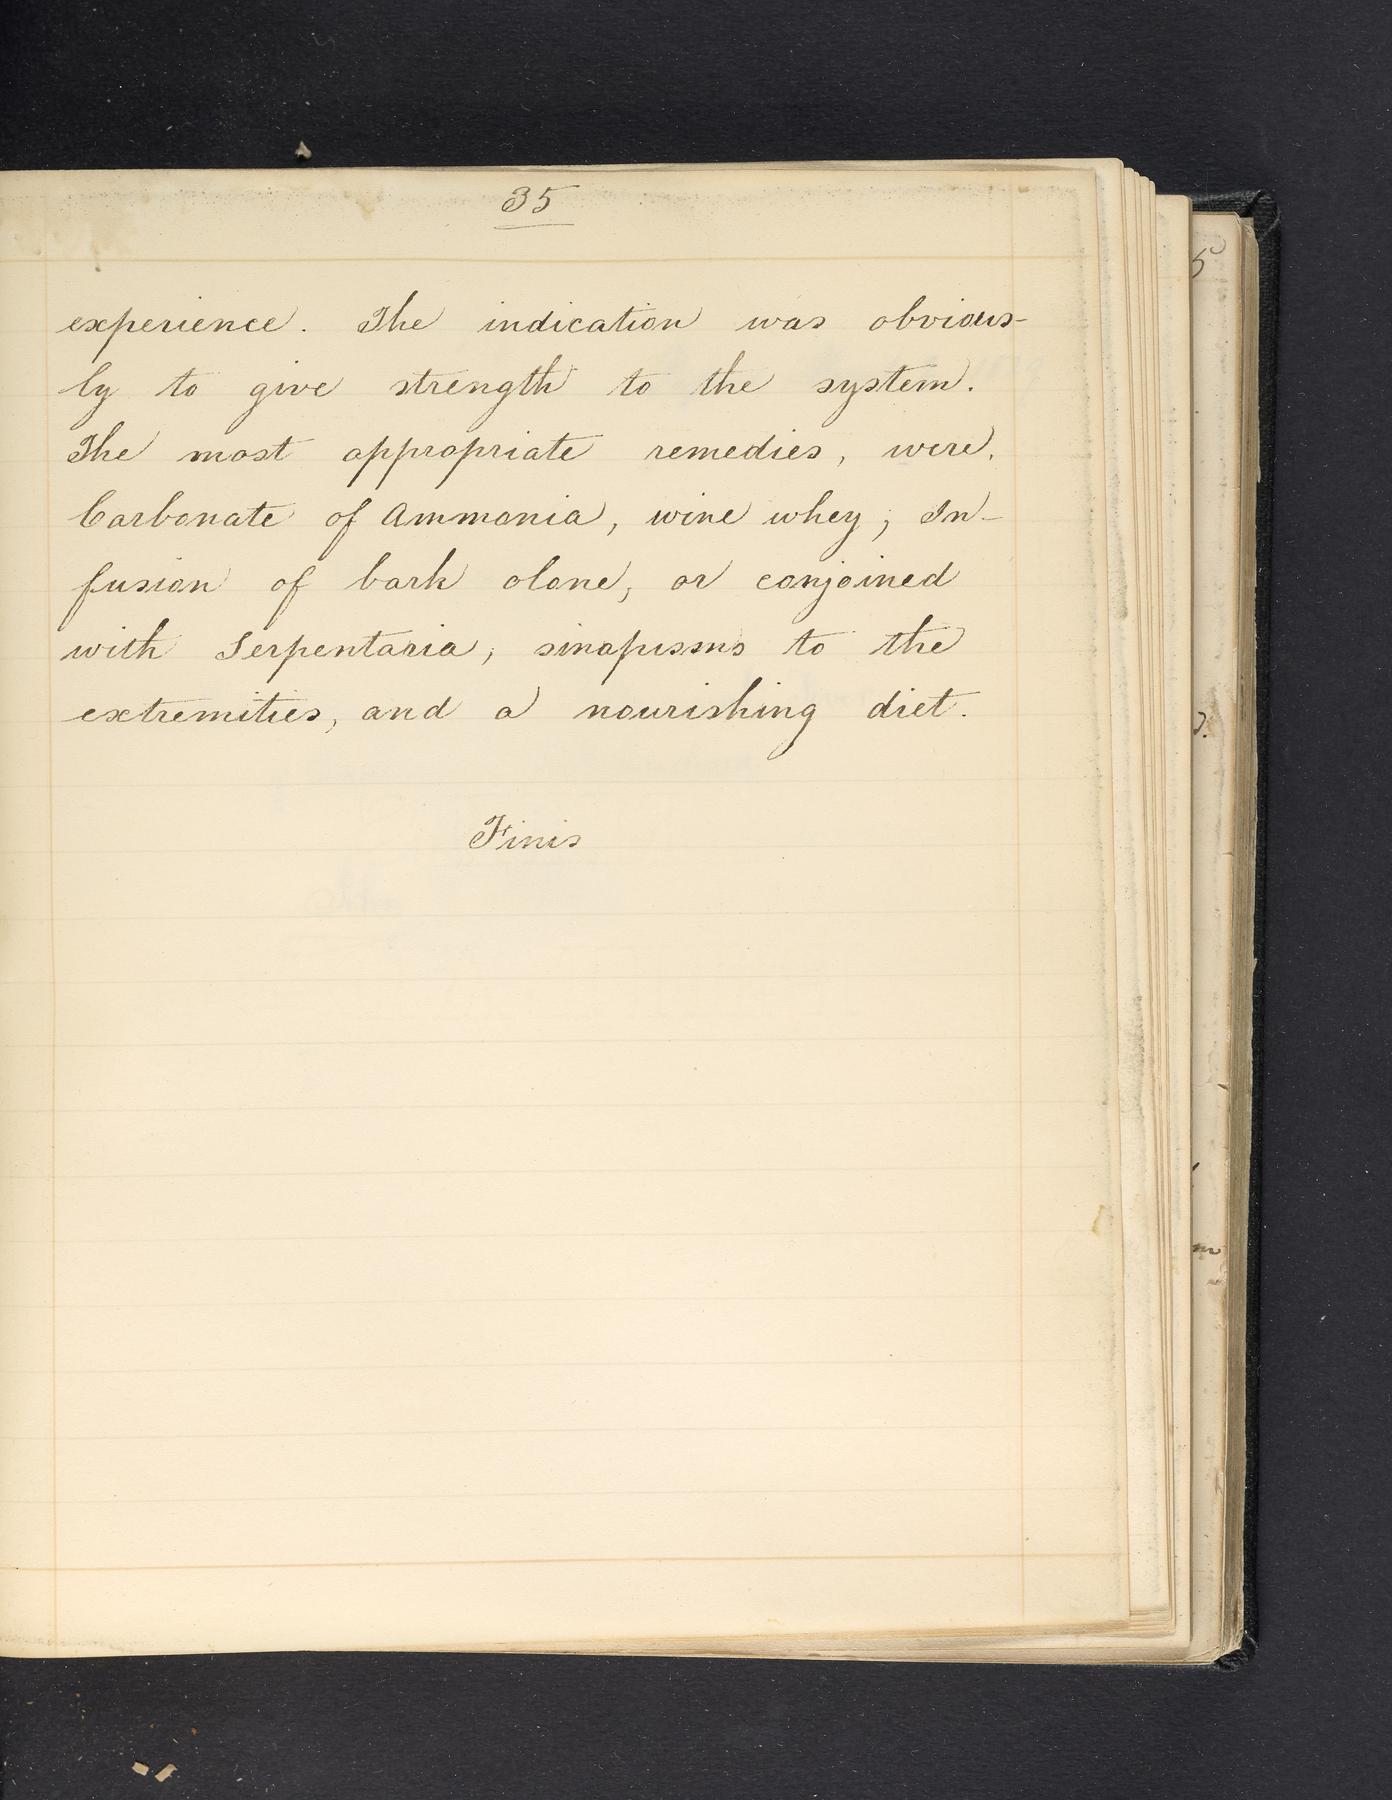 35
experience. The indication was obvious-
ly to give strength to the system.
The most appropriate remedies, were,
Carbonate of Ammonia, wine whey; In-
fusion of bark alone, or conjoined
with Serpentaria; sinapisms to the
extremities, and a nourishing diet.
Finis